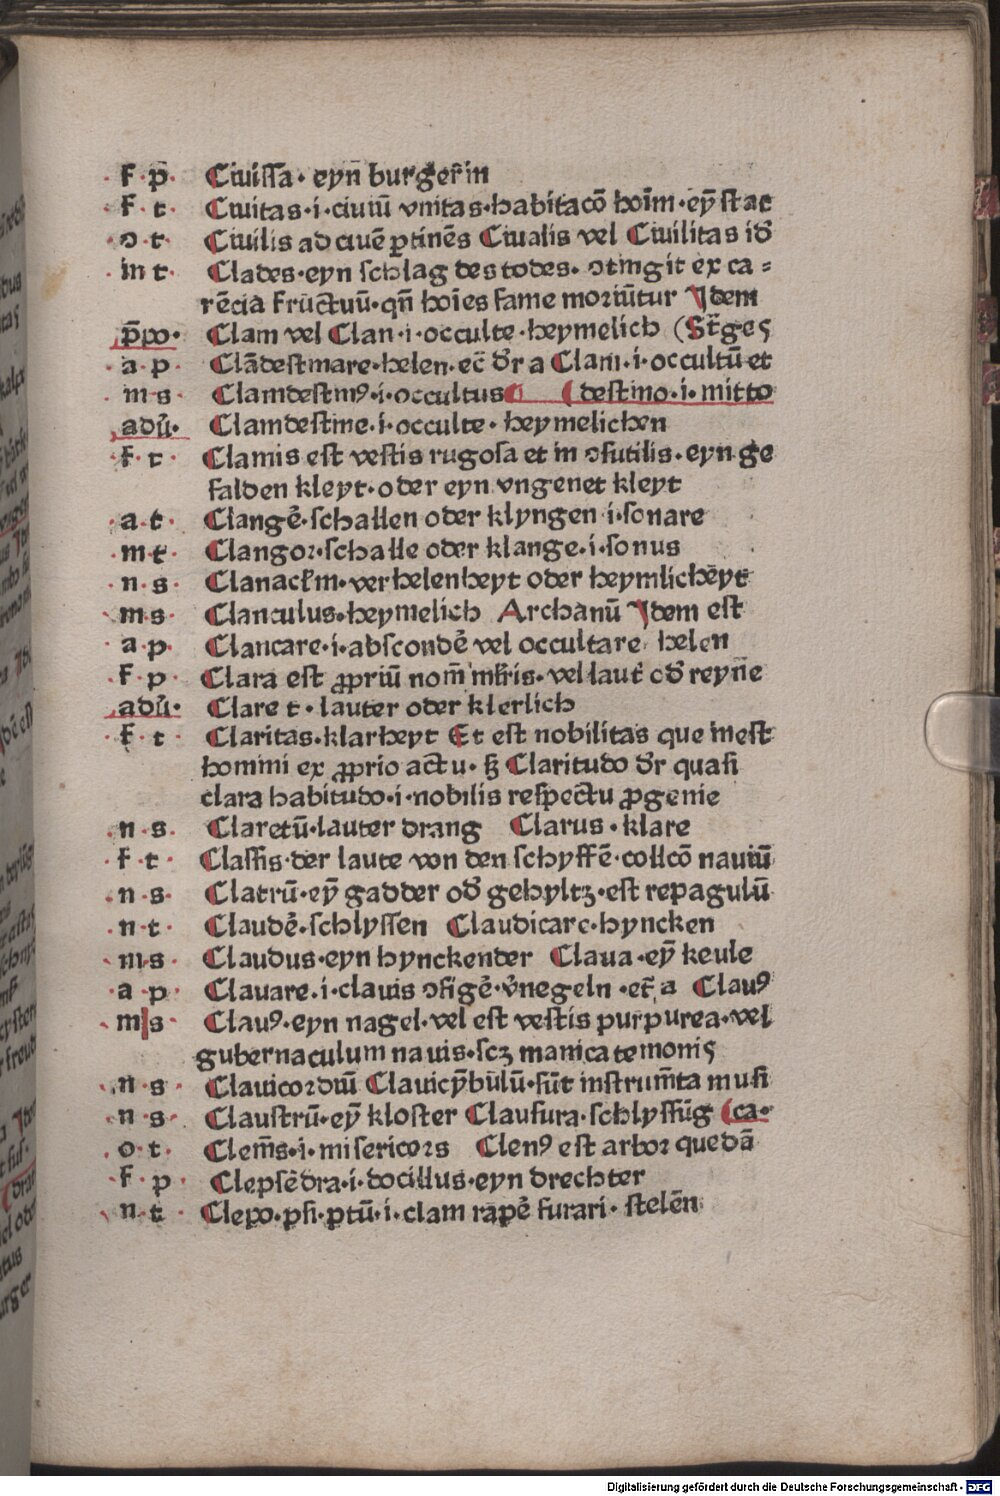 f · p̄ · Ciuissa · eyn̄ burger̄in
f · t · Ciuitas · i · ciuiū vnitas · habitacō hoīm · eȳ stat
o · t · Ciuilis ad ciuē ꝑtinēs Ciualis vel Ciuilitas id̄
m t · Clades · eyn schlag des todes · ↄtingit ex ca=
rēcia fructuū · qn̄ hoīes fame moriūtur Jdem
p̄po · Clam vel Clan · i · occulte · heymelich (St̄geꝭ
a · p · Clādestinare · helen · ec̄ dr̄ a Clam · i · occultū et
m · s · Clamdestinꝰ · i · occultus (destino · i · mitto
adū · Clamdestine · i · occulte · heymelichen
f · t · Clamis est vestis rugosa et in ↄsutilis · eyn ge
falden kleyt · oder eyn vngenet kleyt
a · t · Clangē · schallen oder klyngen · i · sonare
m t · Clangor · schalle oder klange · i · sonus
n · s · Clanacl̄m · verhelenheyt oder heymlichēyt
m s · Clanculus · heymelich Archanū Jdem est
a · p · Clancare · i · abscondē vel occultare · helen
f · p · Clara est ꝓpriū nom̄ mr̄is · vel laut̄ od̄ reyn̄e
adū · Clare t · lauter oder klerlich
f · t · Claritas · klarheyt Et est nobilitas que inest
homini ex ꝓprio actu · ß Claritudo dr̄ quasi
clara habitudo · i · nobilis respectu ꝓgenie
n · s · Claretū · lauter drang Clarus · klare
f · t · Classis · der laute von den schyffē · collcō nauiū
n · s · Clatrū · eȳ gadder od̄ gehyltꝫ · est repagulū
n · t · Claudē · schlyssen Claudicare · hyncken
m s · Claudus · eyn hynckender Claua · eȳ keule
a · p · Clauare · i · clauis ↄfigē · v̄negeln · et̄ a Clauꝰ
m s · Clauꝰ · eyn nagel · vel est vestis purpurea · vel
gubernaculum nauis · scꝫ manica temonis
n · s · Clauicordiū Clauicȳbulū · sūt instrum̄ta musi
n · s · Claustrū · eȳ kloster Clausura · schlyssūg (ca ·
o · t · Clem̄s · i · misericors Clenꝰ est arbor quedā
f · p · Clepsēdra · i · docillus · eyn drechter
n · t · Clepo · psi · ptū · i · clam rapē furari · stelēn
Digitalisierung gefördert durch die Deutsche Forschungsgemeinschaft - DFG